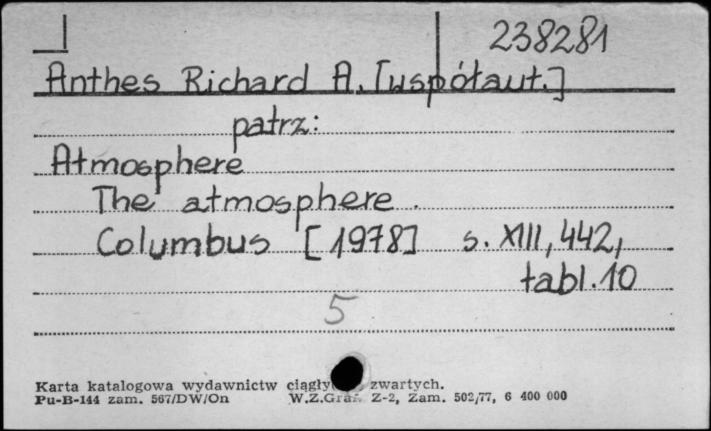 238281
Anthes Richard A. [współaut.]
patrz:
Atmosphere
The atmosphere.
Columbus [1978] s. XIII, 442,
tabl. 10
5
Karta katalogowa wydawnictw zwartych.
Pu-B-144 zam. 567/DW/On W.Z.Graf. Z-2, Zam. 502/77, 6 400 000